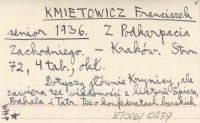 KMIETOWICZ Franciszek
senior 1936. Z Podkarpacia
Zachodniego. – Kraków. Stron
72, 4 tab., obl.
Dotyczy głównie Krynicy, ale
zawiera też wiadomości z historii Spisza,
Podhala i Tatr. Też o konfederatach barskich